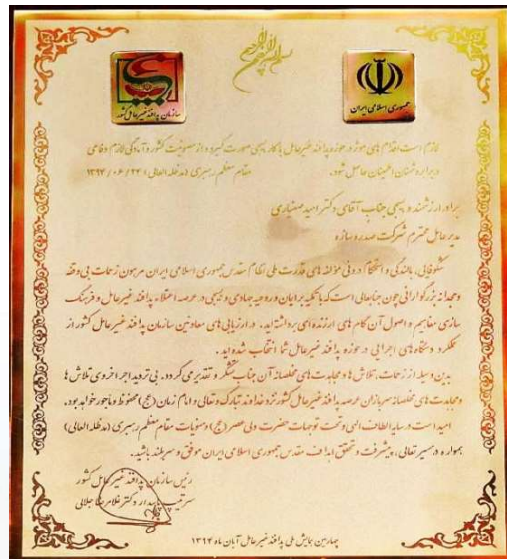 بسم الله الرحمن الرحیم
سازمان پدافند غیرعامل کشور
جمهوری اسلامی ایران
لازم است اقدام های موثر در حوزه پدافند غیرعامل با کار بسیجی صورت گیرد و از مصونیت کشور و آمادگی لازم دفاعی
در برابر دشمنان اطمینان حاصل شود.
مقام معظم رهبری (مدظله العالی)
برادر ارزشمند و بسیجی جناب آقای دکتر امید صفیاری
مدیرعامل محترم شرکت صدر سازه
شکوفایی، بالندگی و استحکام درونی مؤلفه های قدرت ملی نظام مقدس جمهوری اسلامی ایران مرهون زحمات بی وقفه
و مجدانه بزرگوارانی چون جنابعالی است که با تکیه بر ایمان و روحیه جهادی و بسیجی در عرصه اعتلاء پدافند غیرعامل و فرهنگ
سازی مفاهیم و اصول آن گام های ارزنده ای برداشته اید. در ارزیابی های معاونین سازمان پدافند غیرعامل کشور از
عملکرد دستگاه های اجرایی در حوزه پدافند غیرعامل شما انتخاب شده اید.
بدین وسیله از زحمات، تلاش ها و مجاهدت های مخلصانه آن جناب تشکر و تقدیر می گردد. بی تردید اجر اخروی تلاش ها
و مجاهدت های مخلصانه سربازان عرصه پدافند غیرعامل کشور نزد خداوند تبارک و تعالی و امام زمان (عج) محفوظ و مأجور خواهد بود.
امید است در سایه الطاف الهی و تحت توجهات حضرت ولی عصر (عج) و منویات مقام معظم رهبری (مدظله العالی)
همواره در مسیر تعالی، پیشرفت و تحقق اهداف مقدس جمهوری اسلامی ایران موفق و سربلند باشید.
رئیس سازمان پدافند غیرعامل کشور
سرتیپ پاسدار دکتر غلامرضا جلالی
چهارمین همایش ملی پدافند غیرعامل آبان ماه ۱۳۹۴